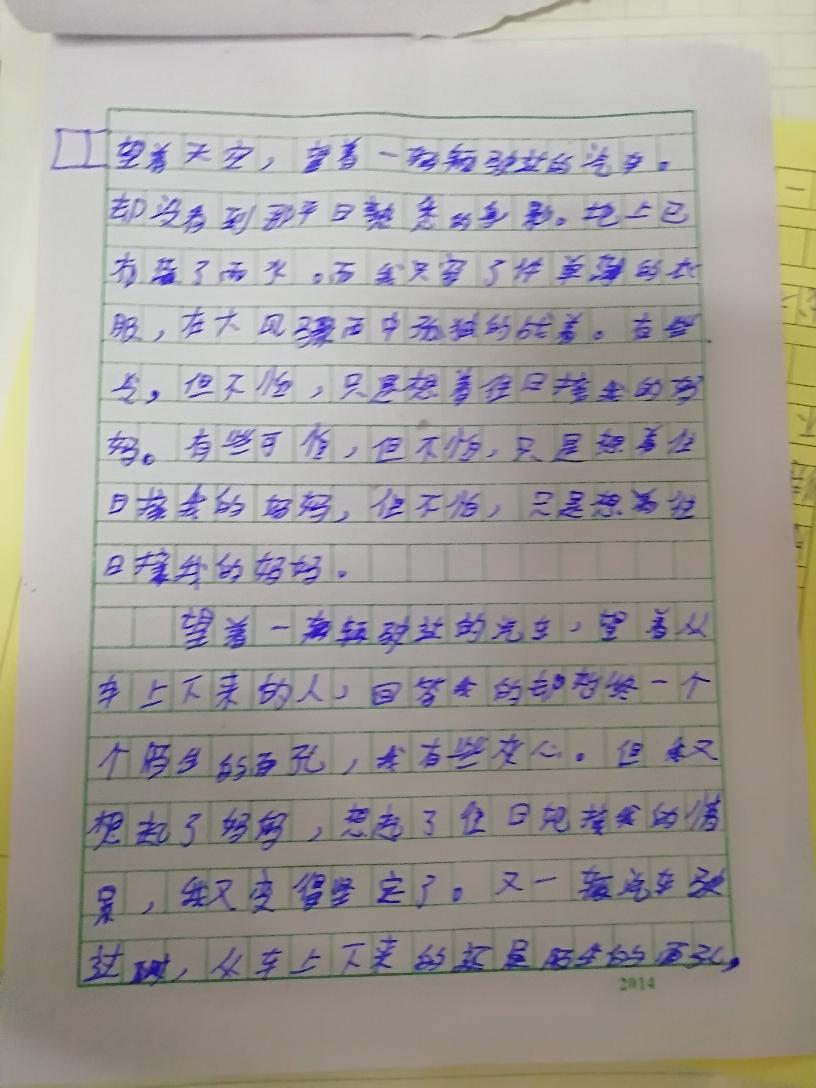 望着天空，望着一辆辆驶过的汽车。
却没看到那平日熟悉的身影。地上已
有了雨水。而我只穿了件单薄的衣
服，在大风骤雨中孤独的站着。有些
，但不怕，只是想着往日接我的妈
妈。有些可怕，但不怕，只是想着往
日接我的妈妈，但不怕，只是想着往
日接我的妈妈。
望着一辆辆驶过的汽车，望着从
车上下来的人，回答我的却始终一个
个陌生的面孔，我有些灰心。但我又
想起了妈妈，想起了往日她接我的情
景，我又变得坚定了。又一辆汽车驶
过，从车上下来的还是陌生的面孔，
2014